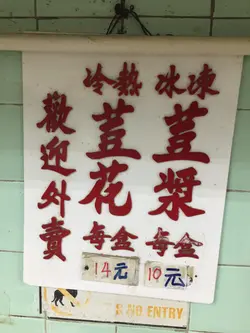 冰凍
荳漿
每盒
10元
冷熱
荳花
每盒
14元
歡迎外賣
NO ENTRY